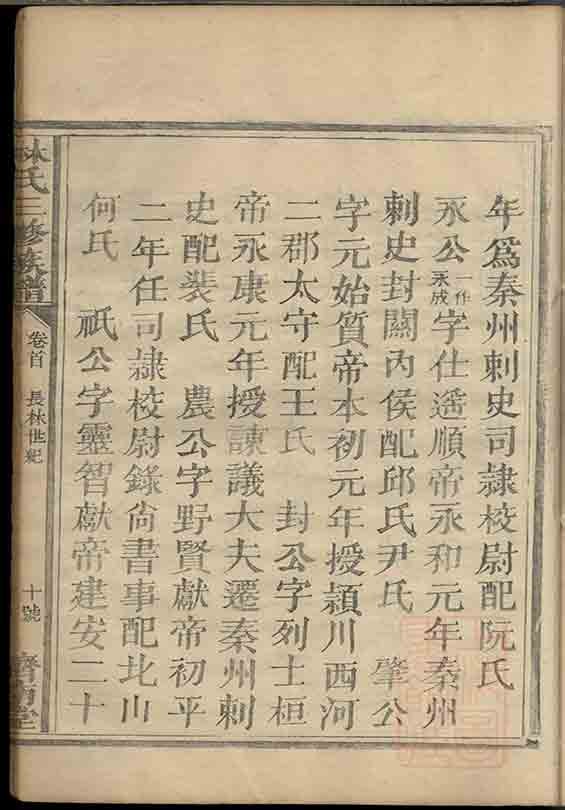 年爲秦州刺史司隷校尉配阮氏
永公一作永成字仕遙順帝永和元年秦州
刺史封關內侯配邱氏尹氏　肇公
字元始質帝本初元年授頴川西河
二郡太守配王氏　封公字列士桓
帝永康元年授諫議大夫遷秦州刺
史配裝氏　農公字野賢獻帝初平
二年任司隷校尉錄尙書事配北山
何氏　祇公字靈智獻帝建安二十
林氏三修族譜
卷首　長林世紀
十號
濟南堂